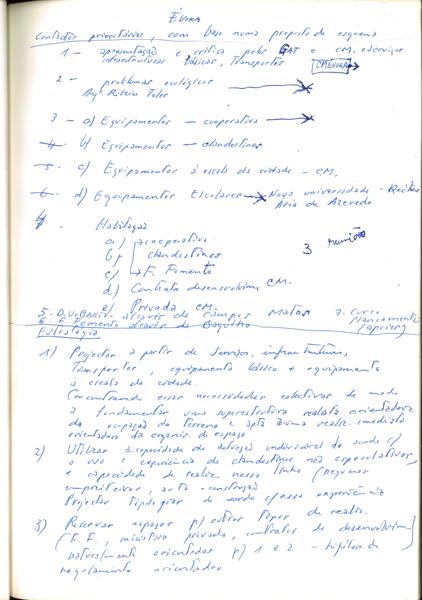 Évora
Contactos prioritários, com base numa proposta de esquema
1 - apresentação e crítica pelo GAT e CM. e serviços
infraestruturas básicas, Transportes
CMÉVORA
2 - problemas ecológicos
Arqº Ribeiro Teles
3 - a) Equipamentos - cooperativa
4- b) Equipamentos - clandestinos
5- c) Equipamentos à escala da cidade - CM.
6- d) Equipamentos Escolares Nova universidade - Reitor
Ario de Azevedo
4 Habitação
a) cooperativa
b) clandestinos
c) F. Fomento
d) Contrato desenvolvim CM.
e) Privada CM.
3 reunião
5- através de campos Matos 7- curso
6- F. Fomento através de Bagulho Planeamento
Estratégia
1) Projectar a partir de serviços, infraestruturas,
Transportes, equipamento básico + equipamento
à escala da cidade.
Concentrando essas necessidades colectivas de modo
a fundamentar uma superestrutura realista orientadora
da ocupação do terreno e apta a uma realiz. imediata
orientadora da organiz. do espaço
2) Utilizar a capacidade de actuação individual de acordo c/
o uso e experiência de clandestinos não especulativos,
e capacidade de realiz nessa linha (pequenos
empreiteiros, auto-construção
Projectar tipologias de acordo c/ essa experiência
3) Reservar espaços p/ outros tipos de realiz.
(F.F., iniciativa privada, contratos de desenvolvim)
naturalmente orientados p/ 1 e 2 - hipótese de
orientador